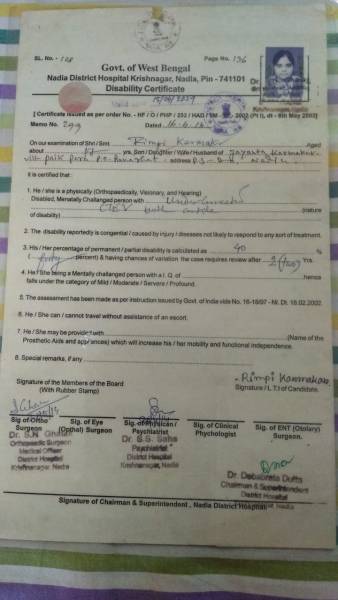 SL. No. - 128
Page No. 136
Govt. of West Bengal
Nadia District Hospital Krishnagar, Nadia, Pin - 741101
Disability Certificate
Valid
[ Certificate issued as per order No. - HF / O / PHP / 233 / HAD / 5M - 2002 (Pt I), dt - 6th May 2003]
Memo No. 299 Dated
On our examination of Shri / Smt Rimpi Karmakar Aged
about yrs. Son / Daughter / Wife / Husband of Jayanta Karmakar
address Nadia
It is certified that :
1. He / she is a physically (Orthopaedically, Visionary, and Hearing)
Disabled, Menatally Challanged person with
(nature
of disability)
2. The disability reportedly is congenital / caused by injury / diseases not likely to respond to any sort of treatment.
3. His / Her percentage of permanent / partial disability is calculated as 40 %
( forty percent) & having chances of variation the case requires review after 2 (two) Yrs.
4. He / She being a Mentally challanged person with a I. Q. of hence
falls under the category of Mild / Moderate / Servere / Profound.
5. The assessment has been made as per instruction issued by Govt. of India vide No. 16-18/97 - NI. Dt. 18.02.2002.
6. He / She can / cannot travel without assistance of an escort.
7. He / She may be provided with (Name of the
Prosthetic Aids and appliances) which will increase his / her mobility and functional independence.
8. Special remarks, if any
Signature of the Members of the Board
(With Rubber Stamp)
Rimpi Karmakar
Signature / L.T.I of Candidate.
Sig. of Ortho Surgeon
Sig. of Eye (Opthal) Surgeon
Sig. of Physician / Psychiatrist
Sig. of Clinical Phychologist
Sig. of ENT (Otolary) Surgeon.
Dr. S.N.
Orthopaedic Surgeon
Medical Officer
District Hospital
Krishnagar, Nadia
Dr. S.S. Saha
Psychiatrist
District Hospital
Krishnagar, Nadia
Dr. Debabrata Dutta
Chairman & Superintendent
District Hospital
Signature of Chairman & Superintendent , Nadia District Hospital